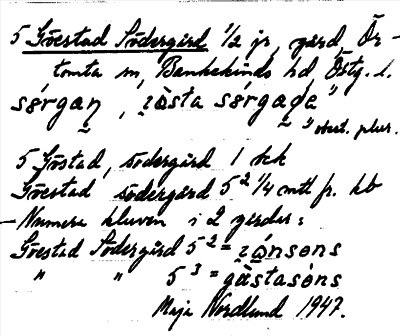 5 Göestad Södergård 1/2 jr, gård Ör-
tomta sn, Bankekinds hd, Östg. l.
sørgaŋ, ɀästa sørgaɖa"
" obest. plur.
5 Göstad, södergård 1 kk
Göestad södergård 5² 1/4 mtl fr. kb
— Numera kluven i 2 gårdar:
Göestad Södergård 5² = ɀǻnsons
" " 5³ = gästasóns
Maja Nordlund 1947.